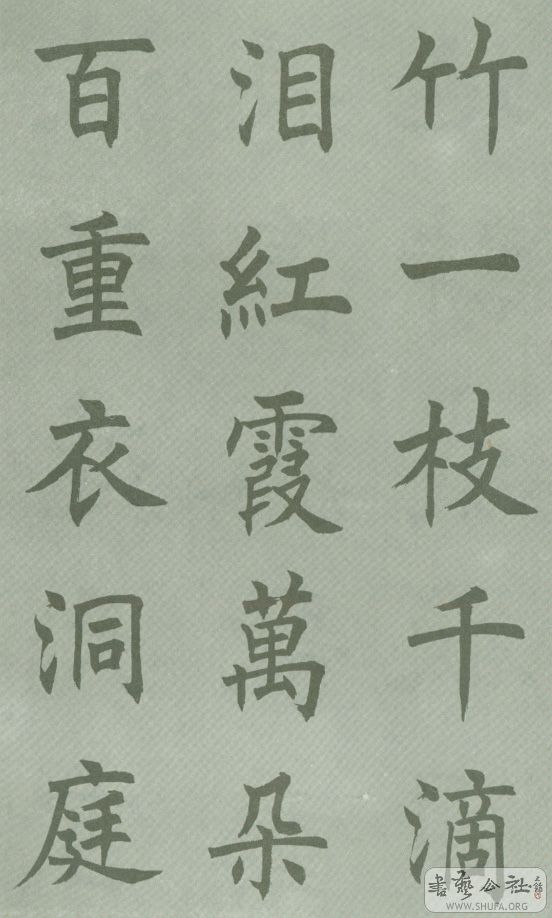 竹一枝千滴
泪紅霞萬朵
百重衣洞庭
書藝公社
WWW.SHUFA.ORG